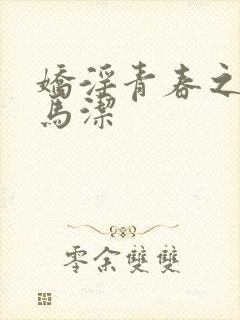 嬌淫青春之
馬潔
零余雙雙